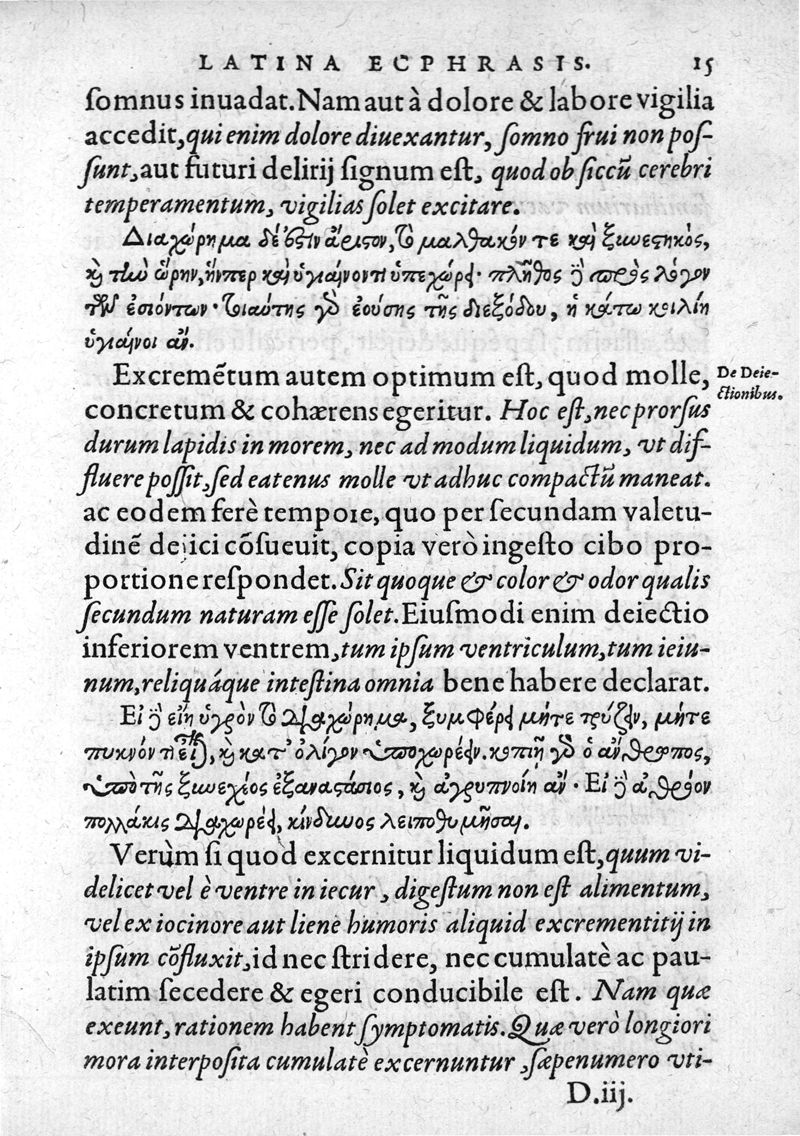 LATINA ECPHRASIS. 15
ſomnus inuadat. Nam aut à dolore & labore vigilia
accedit, qui enim dolore diuexantur, ſomno frui non poſ-
ſunt, aut futuri delirij ſignum eſt, quod ob ſiccũ cerebri
temperamentum, vigilias ſolet excitare.
Διαχώρημα δέ ἐστιν ἄριστον, τὸ μαλθακόν τε καὶ ξυνεστηκὸς,
καὶ τὴν ὥρην, ἥνπερ καὶ ὑγιαίνοντι ὑπεχώρει· πλῆθος δὲ πρὸς λόγον
τῶν ἐσιόντων· τοιαύτης γὰρ ἐούσης τῆς διεξόδου, ἡ κάτω κοιλίη
ὑγιαίνοι ἄν.
Excremẽtum autem optimum eſt, quod molle,
De Deie-
ctionibus.
concretum & cohærens egeritur. Hoc eſt, nec prorſus
durum lapidis in morem, nec ad modum liquidum, vt dif-
fluere poſſit, ſed eatenus molle vt adhuc compactũ maneat.
ac eodem ferè tempore, quo per ſecundam valetu-
dinẽ deijci cõſueuit, copia verò ingeſto cibo pro-
portione reſpondet. Sit quoque & color & odor qualis
ſecundum naturam eſſe ſolet. Eiuſmodi enim deiectio
inferiorem ventrem, tum ipſum ventriculum, tum ieiu-
num, reliquáque inteſtina omnia bene habere declarat.
Εἰ δὲ εἴη ὑγρὸν τὸ διαχώρημα, ξυμφέρει μήτε τρύζειν, μήτε
πυκνόν τι εἶναι, καὶ κατ' ὀλίγον ὑποχωρέειν. κοπιῆ γὰρ ὁ ἄνθρωπος,
ὑπὸ τῆς ξυνεχίος ἐξαναστάσιος, καὶ ἀγρυπνοίη ἄν· Εἰ δὲ ἀθρόον
πολλάκις διαχωρέει, κίνδυνος λειποθυμῆσαι.
Verùm ſi quod excernitur liquidum eſt, quum vi-
delicet vel è ventre in iecur, digeſtum non eſt alimentum,
vel ex iocinore aut liene humoris aliquid excrementitij in
ipſum cõfluxit, id nec ſtridere, nec cumulatè ac pau-
latim ſecedere & egeri conducibile eſt. Nam quæ
exeunt, rationem habent ſymptomatis. Quæ verò longiori
mora interpoſita cumulatè excernuntur, ſæpenumero vti-
D.iij.